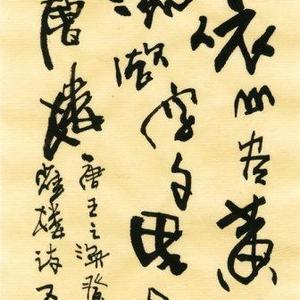 依山尽黄
欲穷千里
層楼
唐王之涣登
雀楼诗